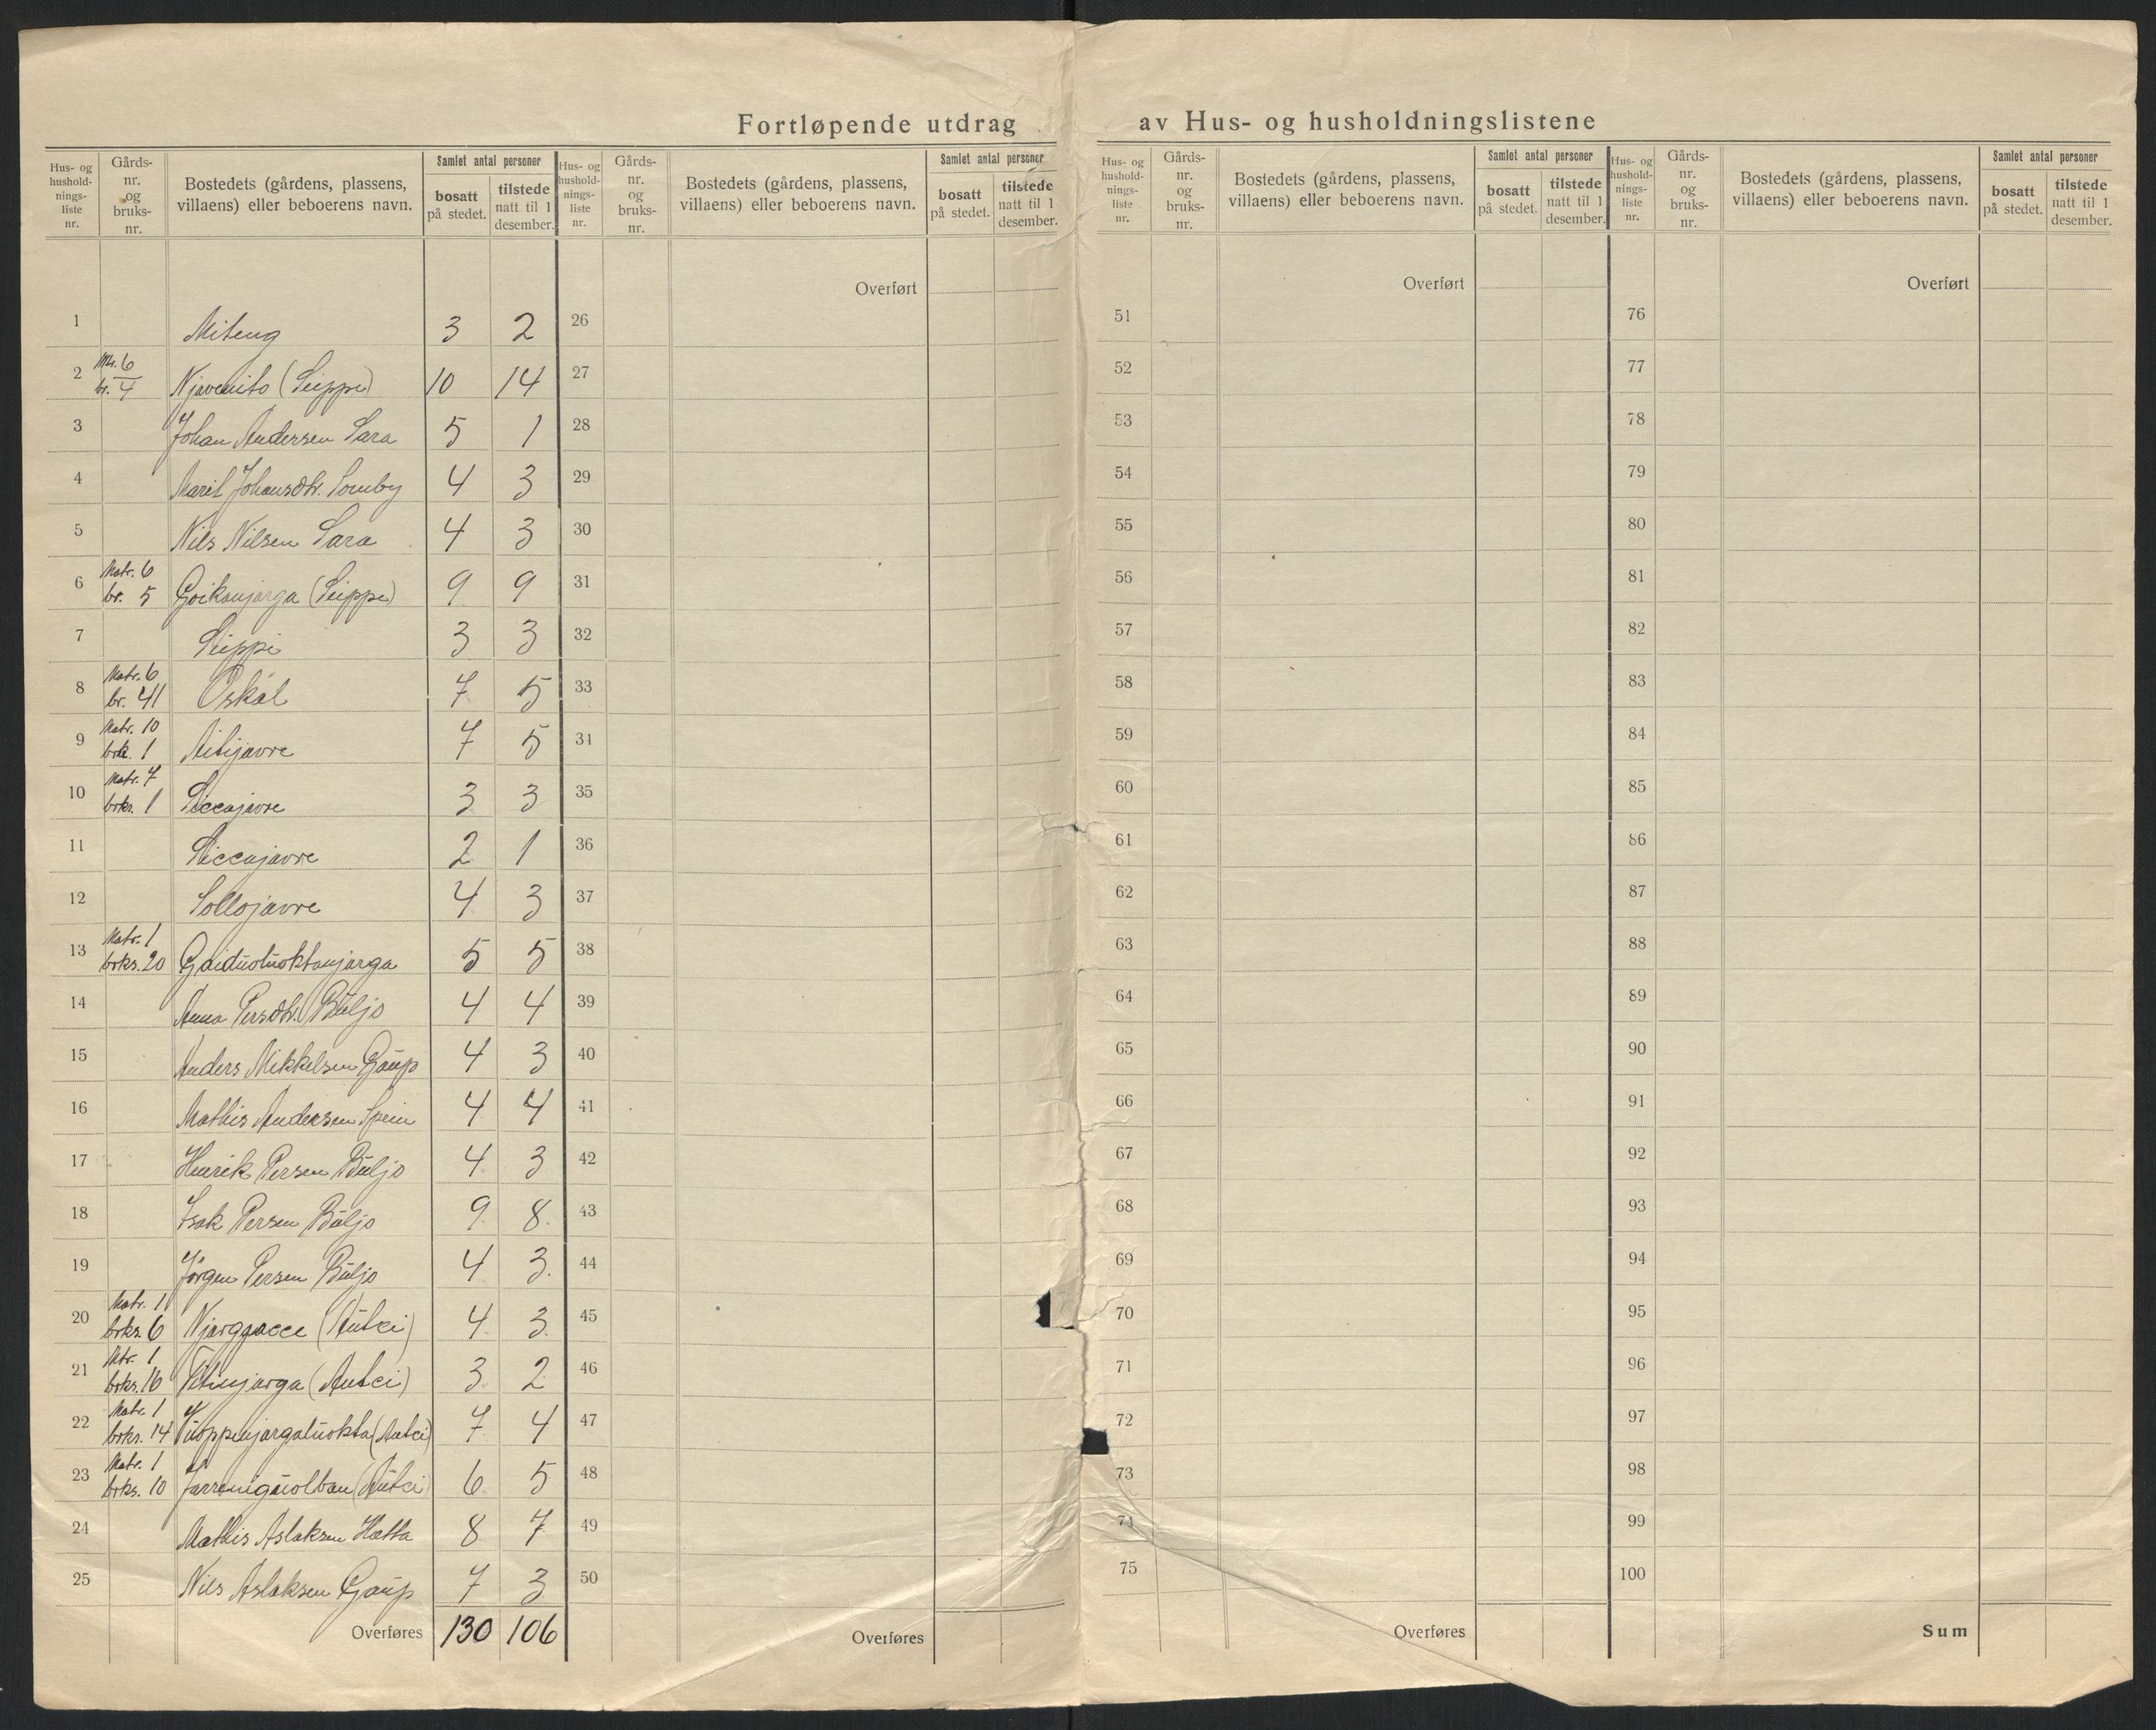 Fortløpende utdrag av Hus- og husholdningslistene
Hus- og husholdnings- liste nr. | Gårds- nr. og bruks- nr. | Bostedets (gårdens, plassens, villaens) eller beboerens navn. | Samlet antal personer | bosatt på stedet. | tilstede natt til 1 desember.
Hus- og husholdnings- liste nr. | Gårds- nr. og bruks- nr. | Bostedets (gårdens, plassens, villaens) eller beboerens navn. | Samlet antal personer | bosatt på stedet. | tilstede natt til 1 desember.
Hus- og husholdnings- liste nr. | Gårds- nr. og bruks- nr. | Bostedets (gårdens, plassens, villaens) eller beboerens navn. | Samlet antal personer | bosatt på stedet. | tilstede natt til 1 desember.
Hus- og husholdnings- liste nr. | Gårds- nr. og bruks- nr. | Bostedets (gårdens, plassens, villaens) eller beboerens navn. | Samlet antal personer | bosatt på stedet. | tilstede natt til 1 desember.
Overført Overført Overført
1 Miteng 3 2 26 51 76
2 br. 4 6 (Seippe) 10 14 27 52 77
3 Johan Andersen Sara 5 1 28 53 78
4 Marit Johansdtr. Somby 4 3 29 54 79
5 Nils Nilsen Sara 4 3 30 55 80
6 Matr. 6 br. 5 Goikanjarga (Seippe) 9 9 31 56 81
7 Seippe 3 3 32 57 82
8 Matr. 6 br. 41 Oskal 7 5 33 58 83
9 Matr. 10 brk. 1 Aitijavre 7 5 34 59 84
10 Matr. 7 brks. 1 Siccajavre 3 3 35 60 85
11 Siccajavre 2 1 36 61 86
12 Sollojavre 4 3 37 62 87
13 Matr. 1 brks. 20 Gaiduoluoktanjarga 5 5 38 63 88
14 Anna Persdtr. Buljo 4 4 39 64 89
15 Anders Mikkelsen Gaup 4 3 40 65 90
16 Mathis Andersen Spein 4 4 41 66 91
17 Henrik Persen Buljo 4 3 42 67 92
18 Isak Persen Buljo 9 8 43 68 93
19 Jörgen Persen Buljo 4 3 44 69 94
20 Matr. 1 brks. 6 Njarggacce (Autci) 4 3 45 70 95
21 Mtr. 1 brks. 16 (Autci) 3 2 46 71 96
22 Matr. 1 brks. 14 (Autci) 7 4 47 72 97
23 Matr. 1 brks. 10 (Autci) 6 5 48 73 98
24 Mathis Aslaksen Hætta 8 7 49 74 99
25 Nils Aslaksen Gaup 7 3 50 75 100
Overføres 130 106 Overføres Overføres Sum